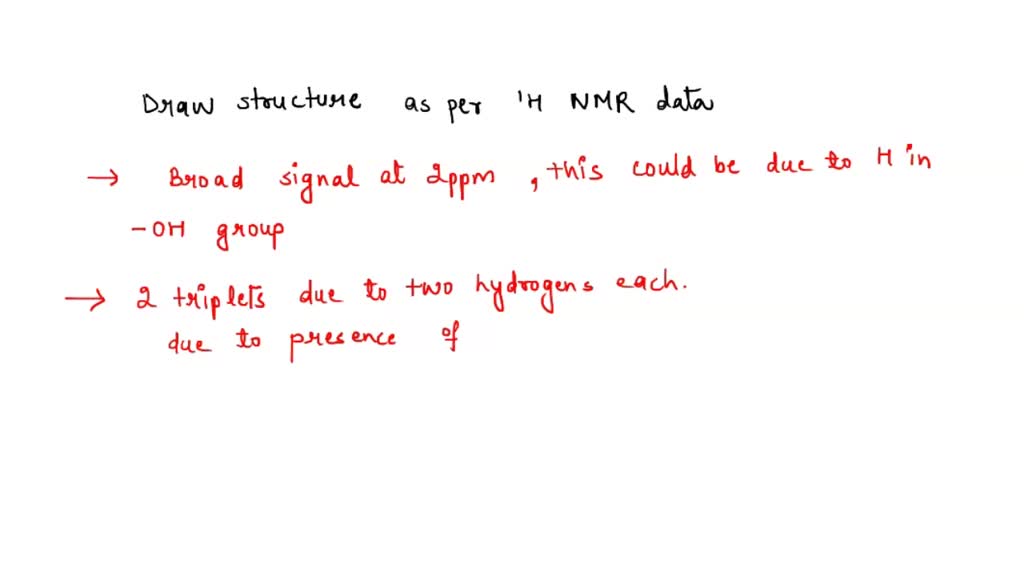 Draw structure as per ¹H NMR data
→ Broad signal at 2ppm, this could be due to H in
-OH group
→ 2 triplets due to two hydrogens each.
due to presence of